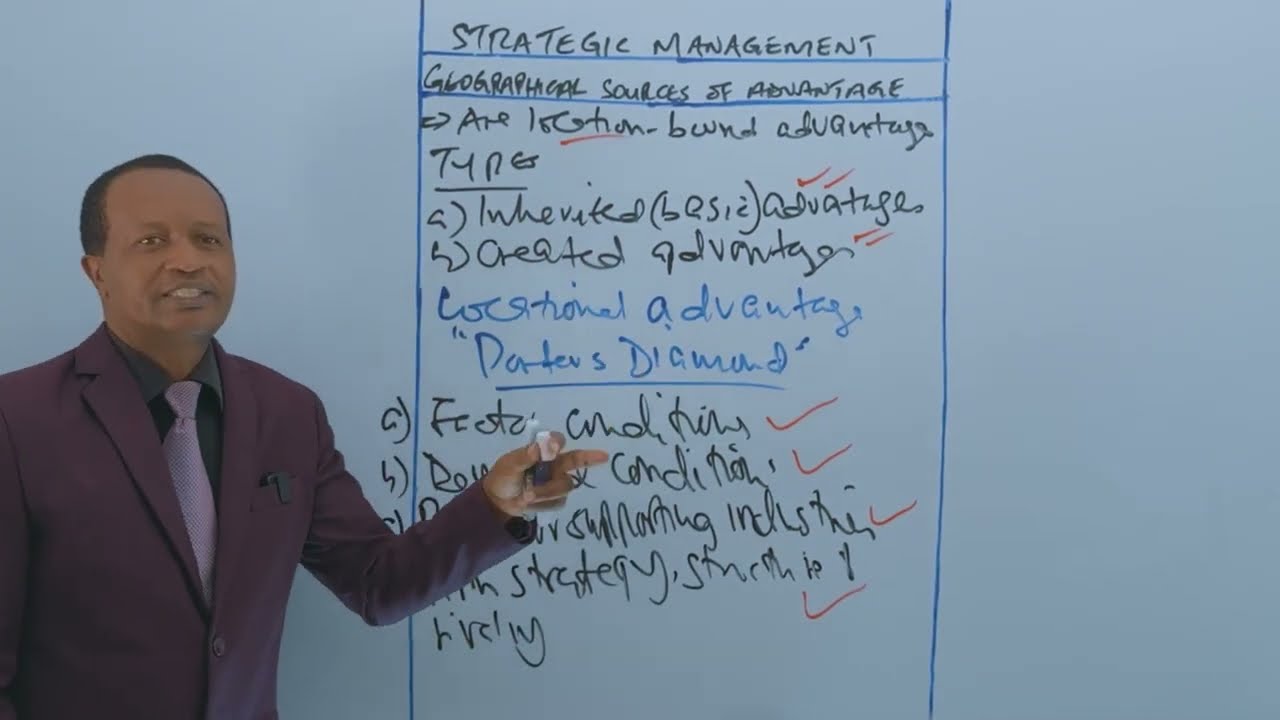 STRATEGIC MANAGEMENT
GEOGRAPHICAL SOURCES OF ADVANTAGE
⇒ Are location-bound advantage
TYPES
a) Inherited (basic) advatages
b) Created advantages
Locational advantage
"Porters Diamond"
a) conditions
b) condition
supporting industries
strategy, structure &
rivalry